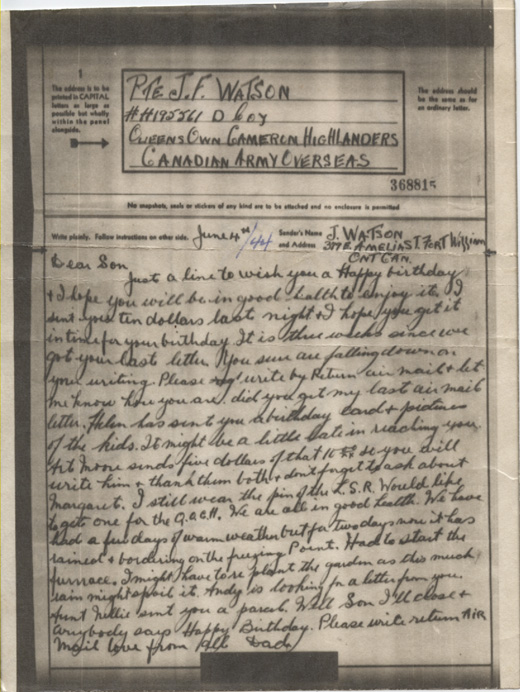 1
The address is to be
printed in CAPITAL
letters as large as
possible but wholly
within the panel
alongside.
PTE J. F. WATSON
#H195561 D Coy
QUEENS OWN CAMERON HIGHLANDERS
CANADIAN ARMY OVERSEAS
The address should
be the same as for
an ordinary letter.
368815
No snapshots, seals or stickers of any kind are to be attached and no enclosure is permitted
Write plainly. Follow instructions on other side.
June 4th/44
Sender's Name
and Address
J. WATSON
E. AMELIA ST. FORT William
ONT CAN.
Dear Son
Just a line to wish you a Happy birthday
+ I hope you will be in good health to enjoy it. I
sent you ten dollars last night + I hope you get it
in time for your birthday. It is three weeks since we
got your last letter. You sure are falling down on
your writing. Please write by Return air mail + let
me know how you are. did you get my last air mail
letter. Helen has sent you a birthday card + pictures
of the kids. It might be a little late in reaching you.
Art Moore sends five dollars of that so you will
write him + thank them both + don't forget to ask about
Margaret. I still wear the pin of the L.S.R. Would like
to get one for the Q.O.C.H. We are all in good health. We have
had a few days of warm weather but for two days now it has
rained + bordering on the freezing Point. Had to start the
furnace. I might have to re plant the garden as this much
rain might spoil it. Andy is looking for a letter from you.
Aunt Nellie sent you a parcel. Well Son I'll close +
everybody says Happy Birthday. Please write return AIR
Mail love from all Dad